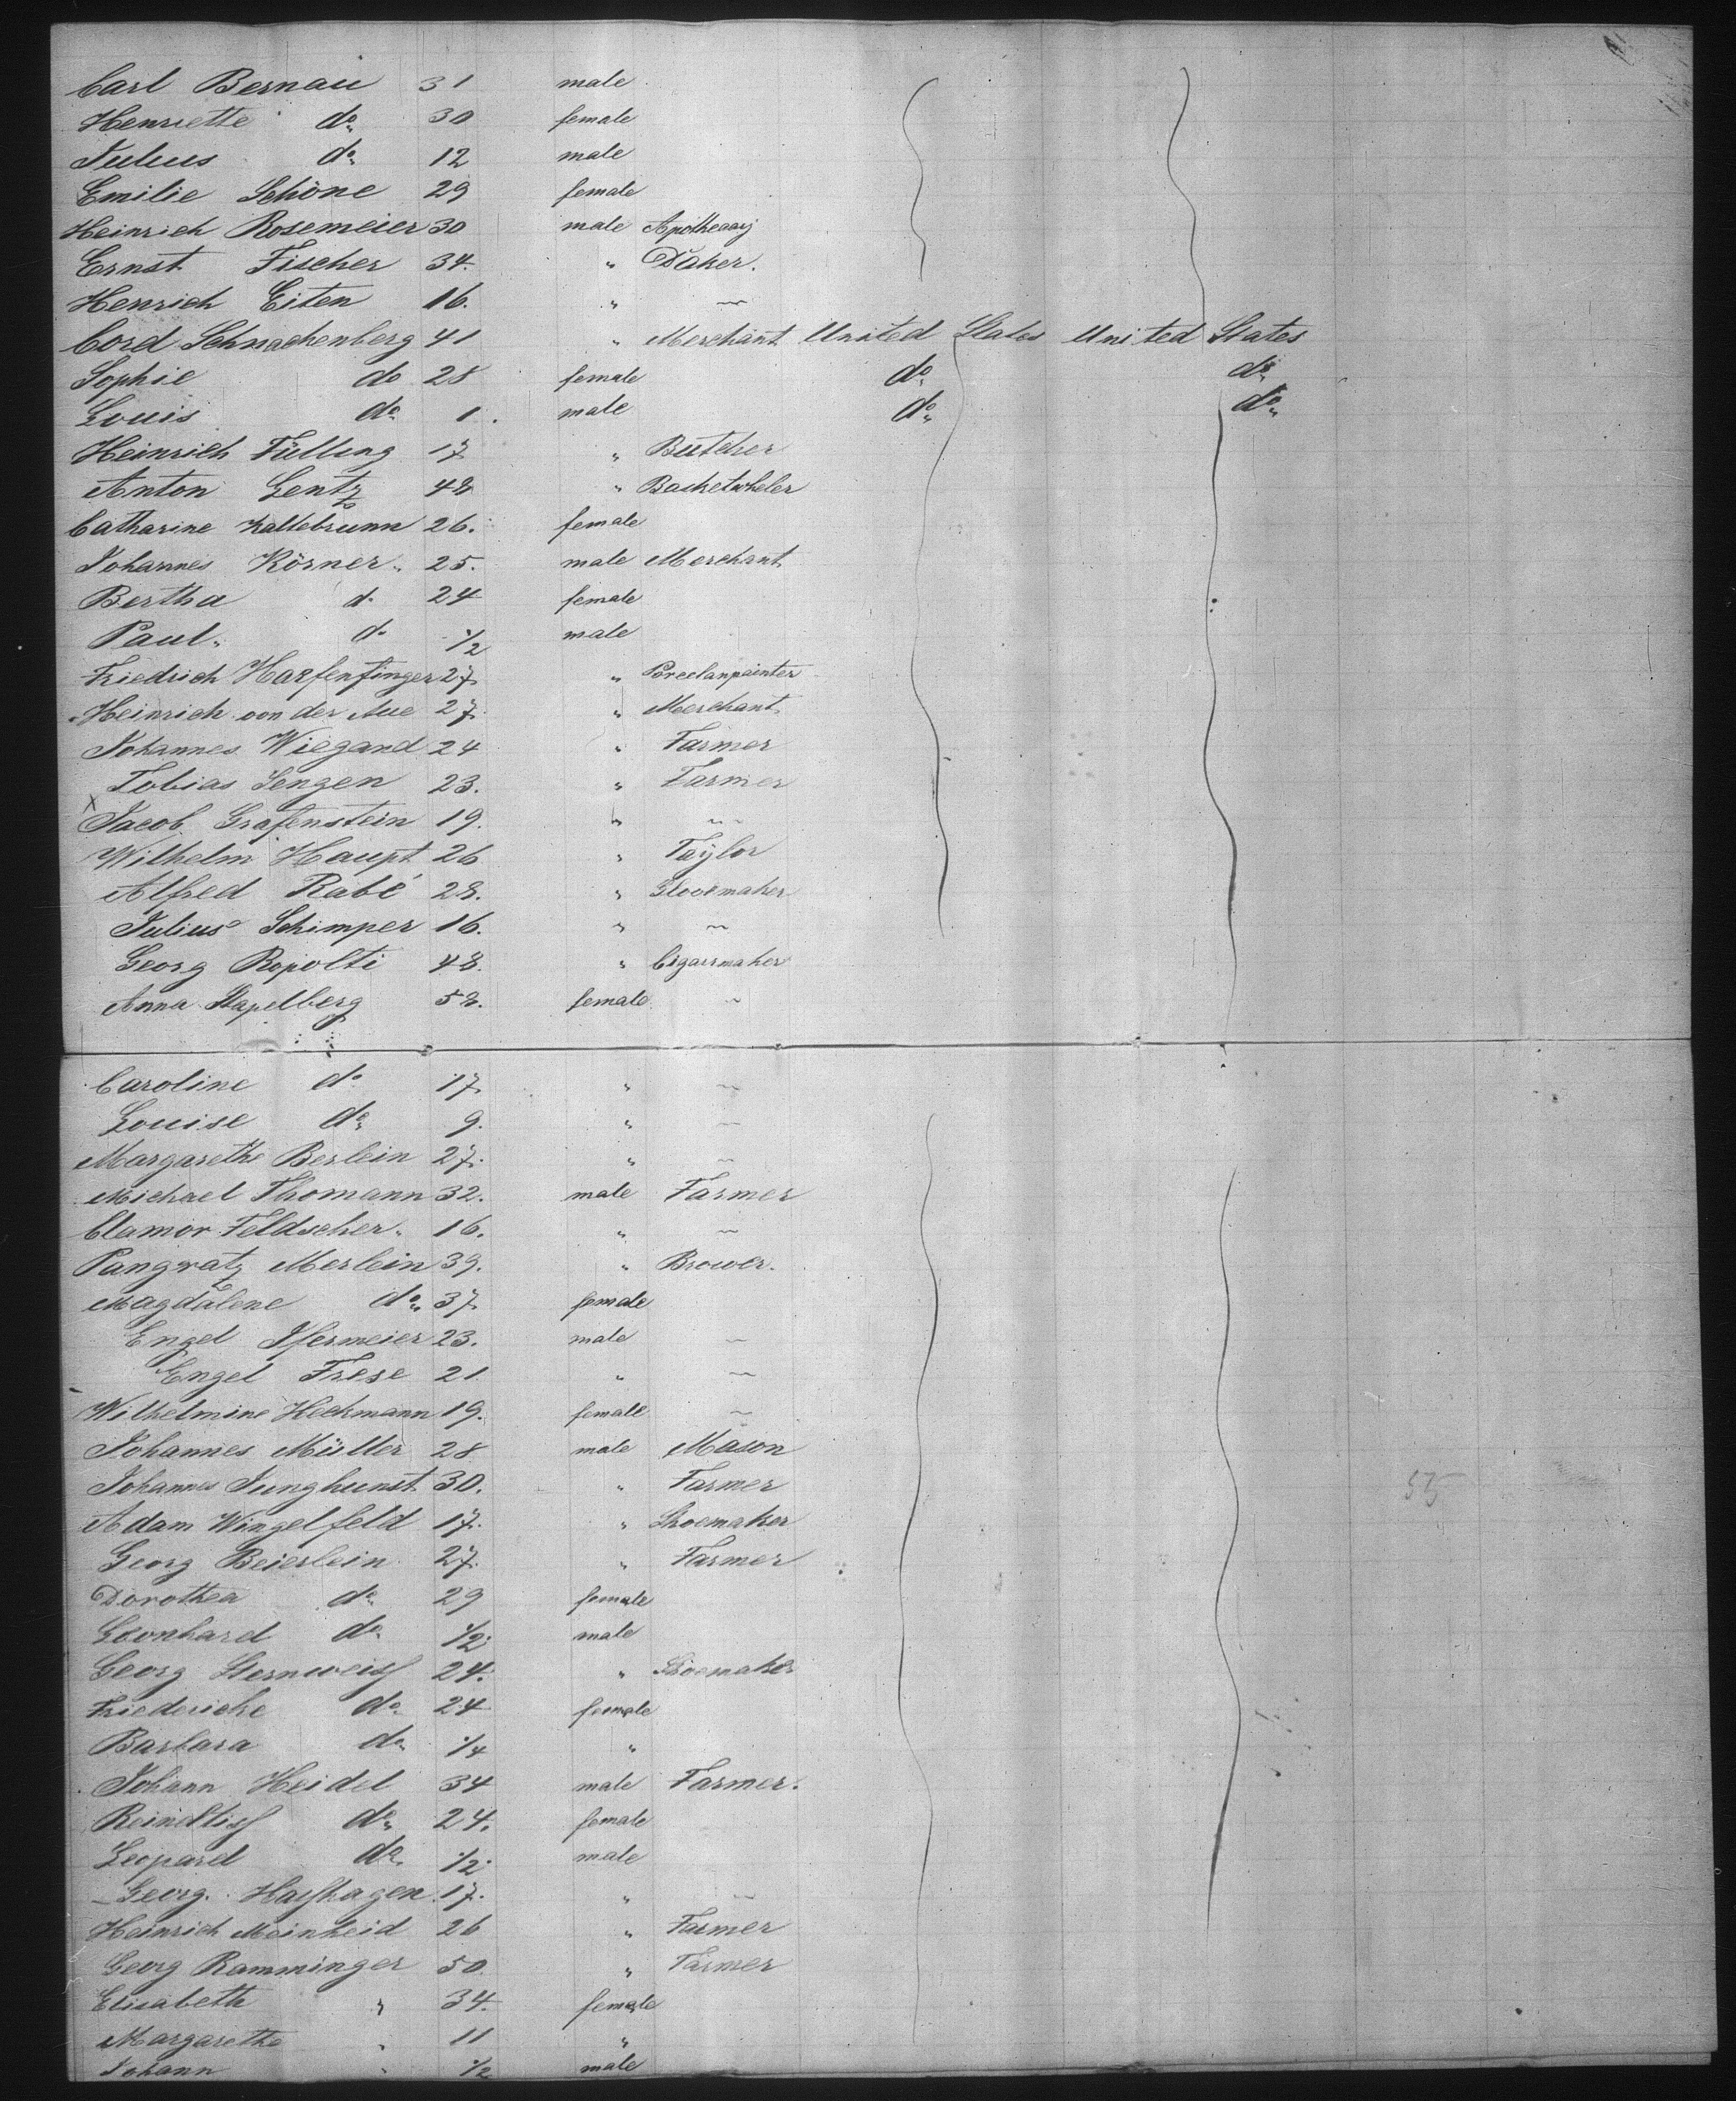 Carl Bernau 31 male
Henriette do 30 female
Julius do 12 male
Emilie Schöne 29 female
Heinrich Rosemeier 30 male Apothecary
Ernst Fischer 34. " Baker.
Henrich Eiten 16. " ~
Cord Schnackenberg 41 " Merchant United States United States
Sophie do 28 female do do
Louis do 1. male do do
Heinrich Fülling 17 " Butcher
Anton Lentz 48 "
Catharine Kaltebrunn 26. female
Johannes Körner 25. male Merchant
Bertha do 24 female
Paul do 1/2 male
Friedrich Harfenfinger 27 " Porcelanpainter
Heinrich von der Aue 27 " Merchant
Johannes Wiegand 24 " Farmer
Tobias Sengen 23. " Farmer
x Jacob Grafenstein 19. " ~
Wilhelm Haupt 26 " Taylor
Alfred Rabé 28. " Glovemaker
Julius Schimper 16. " ~
Georg Ropolti 48. " Cigarrmaker
Anna Stapelberg 58. female ~
Caroline do 17 " ~
Louise do 9. " ~
Margarethe Berlein 27. " ~
Michael Thomann 32. male Farmer
Clamor Feldscher 16. " ~
Pangratz Merlein 39. " Brower.
Magdalene do 37 female
Engel Ifermeier 23. male ~
Engel Frese 21 " ~
Wilhelmine Heckmann 19. female ~
Johannes Müller 28 male Mason
Johannes Junghunst 30. " Farmer
Adam Wingelfeld 17. " Shoemaker
Georg Beierlein 27. " Farmer
Dorothea do 29 female
Leonhard do 1/2 male
Georg Sternweiss 24. " Shoemaker
Friedericke do 24 female
Barbara do 1/4 "
Johann Heidel 34 male Farmer.
do 24. female
Leopard do 1/2 male
Georg Hasshagen 17. " ~
Heinrich Meinheid 26 " Farmer
Georg Ramminger 50 " Farmer
Elisabeth " 34. female
Margarethe " 11 "
Johann " 1/2 male